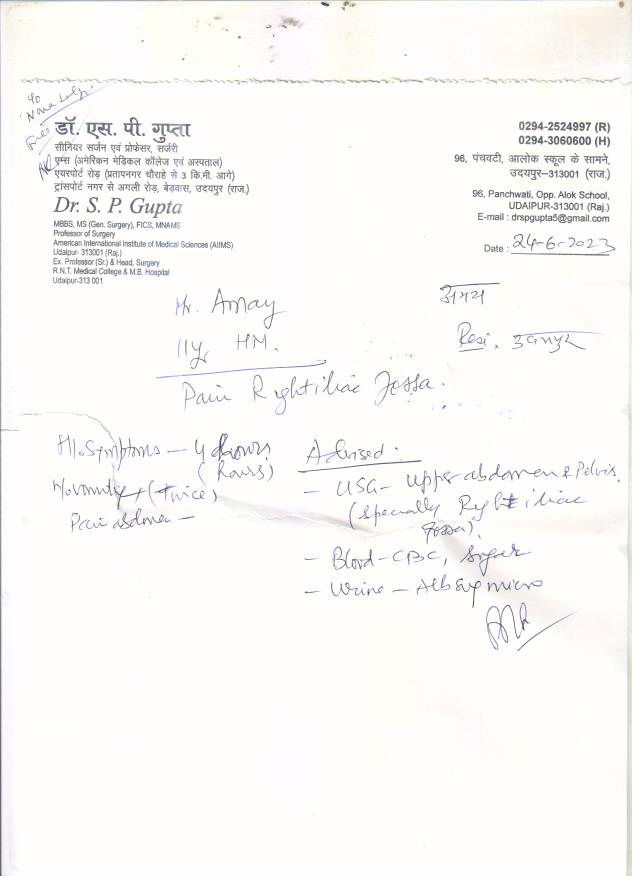 To
Free
डॉ. एस. पी. गुप्ता
सीनियर सर्जन एवं प्रोफेसर, सर्जरी
एम्स (अमेरिकन मेडिकल कॉलेज एवं अस्पताल)
एयरपोर्ट रोड़ (प्रतापनगर चौराहे से 3 कि.मी. आगे)
ट्रांसपोर्ट नगर से अगली रोड़, बेड़वास, उदयपुर (राज.)
Dr. S. P. Gupta
MBBS, MS (Gen. Surgery), FICS, MNAMS
Professor of Surgery
American International Institute of Medical Sciences (AIIMS)
Udaipur- 313001 (Raj.)
Ex. Professor (Sr.) & Head, Surgery
R.N.T. Medical College & M.B. Hospital
Udaipur-313 001
0294-2524997 (R)
0294-3060600 (H)
96, पंचवटी, आलोक स्कूल के सामने,
उदयपुर–313001 (राज.)
96, Panchwati, Opp. Alok School,
UDAIPUR-313001 (Raj.)
E-mail : drspgupta5@gmail.com
Date : 24-6-2023
Mr. Amay
अमय
11yr HM.
Resi. उदयपुर
Pain Right iliac fossa.
H/o Symptoms — 4 hours
(hours)
H/o vomity + (twice)
Pain abdomen —
Advised :
- USG - Upper abdomen & Pelvis,
(specially Right iliac
fossa),
- Blood - CBC, Sugar
- Urine - Alb Sug micro